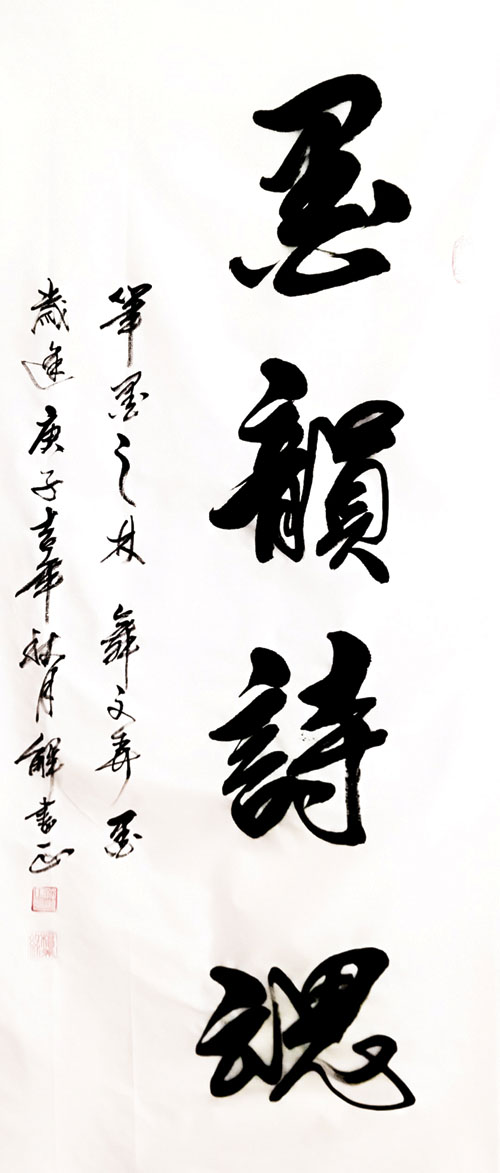 墨韻詩魂
筆墨之林 舞文弄墨
歲逢庚子吉年秋月 解書正